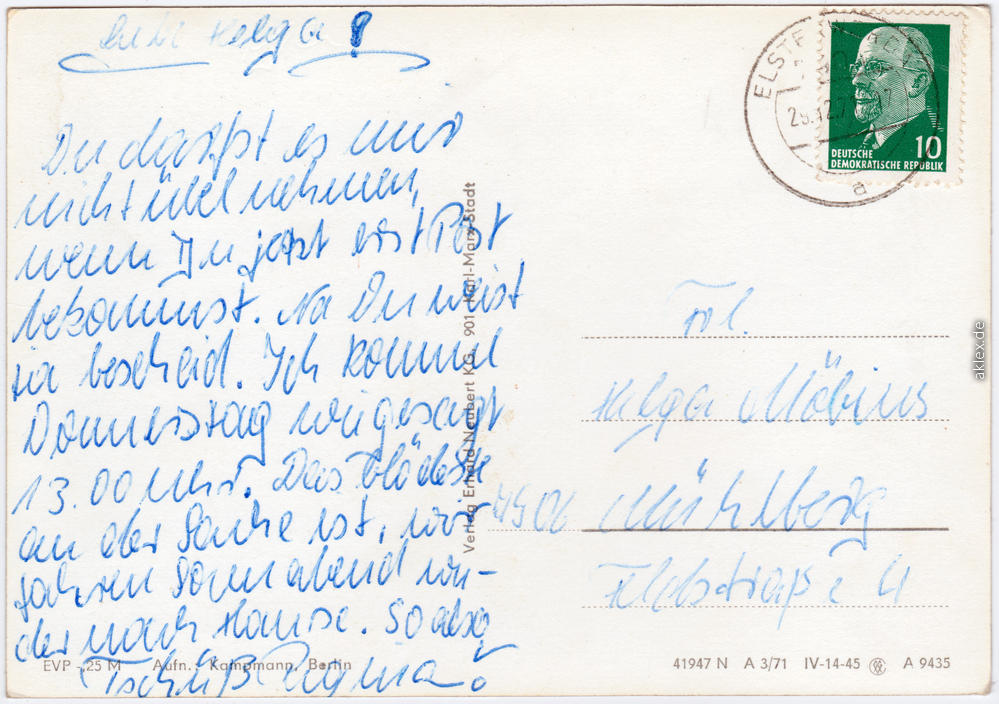 Liebe Helga!
Du darfst es mir
nicht übel nehmen,
wenn Du jetzt erst Post
bekommst. Na Du weist
ja bescheid. Ich komme
Donnerstag wie gesagt
13.00 Uhr. Das blödeste
an der Sache ist, wir
fahren Sonnabend wie-
der nach Hause. So
Tschüß Regina.
EVP -,25 M Aufn.: Kampmann, Berlin
Verlag Erhard Neubert KG. 901 Karl-Marx-Stadt
ELSTERWERDA
a
10
DEUTSCHE
DEMOKRATISCHE REPUBLIK
Frl.
Helga Möbius
4906 Mühlberg
Feldstraße 4
41947 N A 3/71 IV-14-45 A 9435
aklex.de